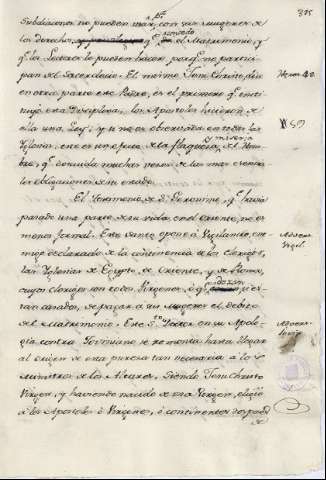 375
Subdiaconos no pueden usar con sus mugeres de
los derechos, q.e concede el Matrimonio, y
q.e los Lectores lo pueden hacer, porq.e no partici-
pan del Sacerdocio. El mismo Jesu Christo, dice
en otra parte este Padre, es el primero q.e insti-
tuyó esta Disciplina, los Apostoles hicieron de
ella una Ley, y si no es observada en todas las
Yglesias, este es un efecto de la flaqueza, y miseria del Hom-
bre, q.e descuida muchas veces de las mas esencia-
les obligaciones de su estado.
El testimonio de S. Geronimo, q.e havia
parado una parte de su vida en el oriente, no es
menos formal. Este santo opone á Vigilancio, ene-
migo declarado de la continencia de los Clerigos,
las Yglesias de Egypto, de Oriente, y de Roma,
cuyos clerigos son todos Virgenes, ó q.e si es-
tan casados, dexan de pagar á sus mugeres el debito
del Matrimonio. Este S.to Doctor en su Apolo-
gia contra Joviniano se remonta hasta llegar
al origen de esta pureza tan necesaria á los
Ministros de los Altares. Siendo Jesu Christo
Virgen, y haviendo nacido de una Virgen, eligió
á los Apostoles ó Virgenes, ó continentes despues
de